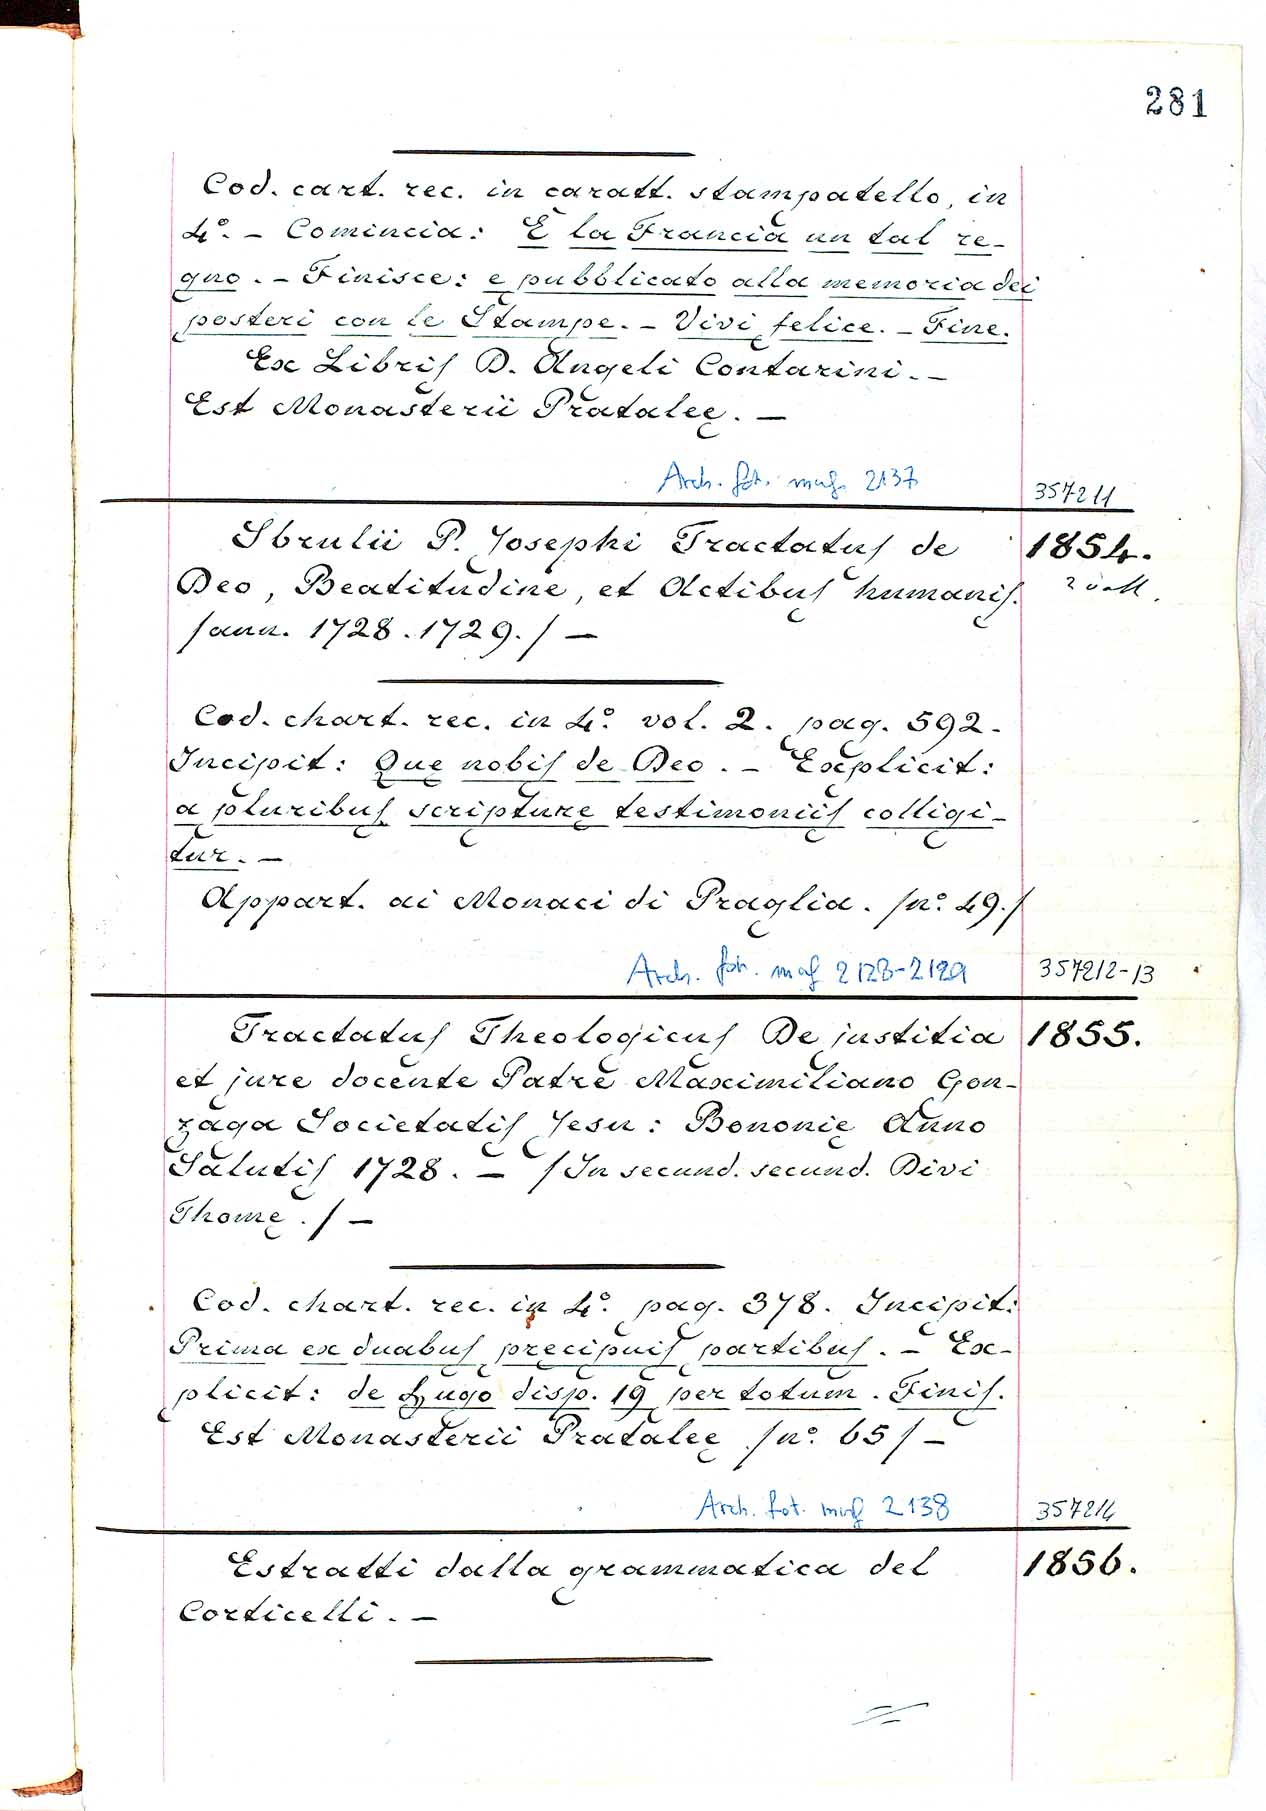 281
Cod. cart. rec. in caratt. stampatello, in
4º. – Comincia: E la Francia un tal re-
gno. – Finisce: e pubblicato alla memoria dei
posteri con le Stampe. – Vivi felice. – Fine.
Ex Libris D. Angeli Contarini. –
Est Monasterii Prataleę. –
Arch. fot. 2137
357211
Sbrulii P. Josephi Tractatus de
1854.
Deo, Beatitudine, et Actibus humanis.
2 voll.
/ann. 1728.1729./ –
Cod. chart. rec. in 4º. vol. 2. pag. 592.
Incipit: Quę nobis de Deo. – Explicit:
a pluribus scripturę testimoniis colligi-
tur. –
Appart. ai Monaci di Praglia. /nº. 49./
Arch. fot. 2128-2129
357212-13
Tractatus Theologicus De justitia
1855.
et jure docente Patre Maximiliano Gon-
zaga Societatis Jesu: Bononię Anno
Salutis 1728. – /In secund. secund. Divi
Thomę./ –
Cod. chart. rec. in 4º. pag. 378. Incipit:
Prima ex duabus pręcipuis partibus. – Ex-
plicit: de Lugo disp. 19 per totum. Finis.
Est Monasterii Pratalęę /nº. 65/ –
Arch. fot. 2138
357214
Estratti dalla grammatica del
1856.
Corticelli. –